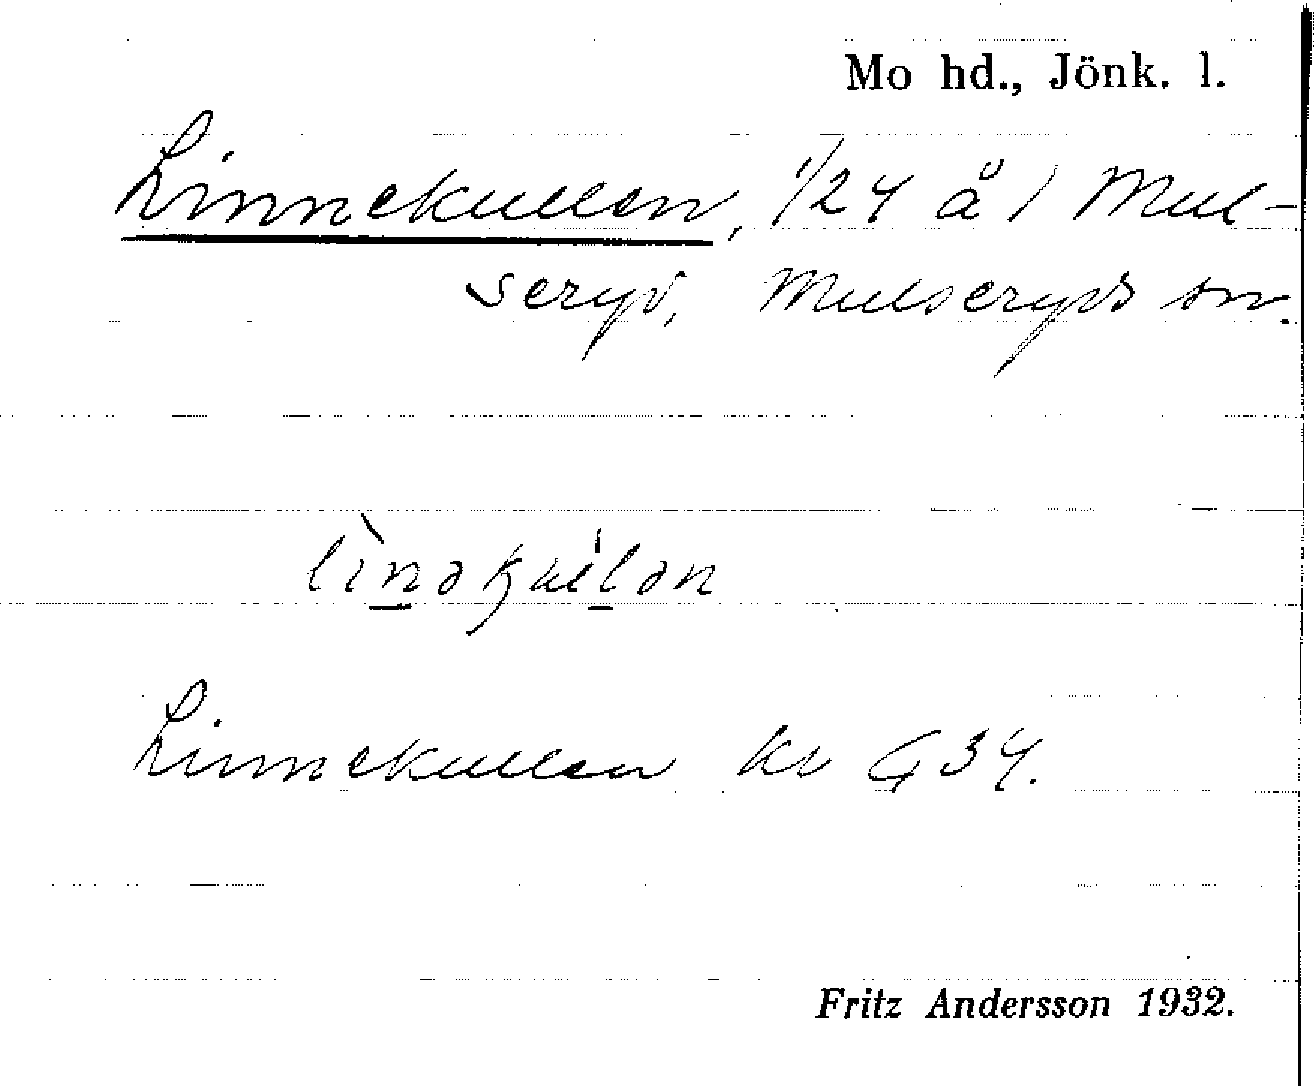 Mo hd., Jönk. l.
Linnekullen, 1/24 å 1 Mul-
seryd, Mulseryds sn.
lìnəku̇lən
Linnekullen kv G 34.
Fritz Andersson 1932.